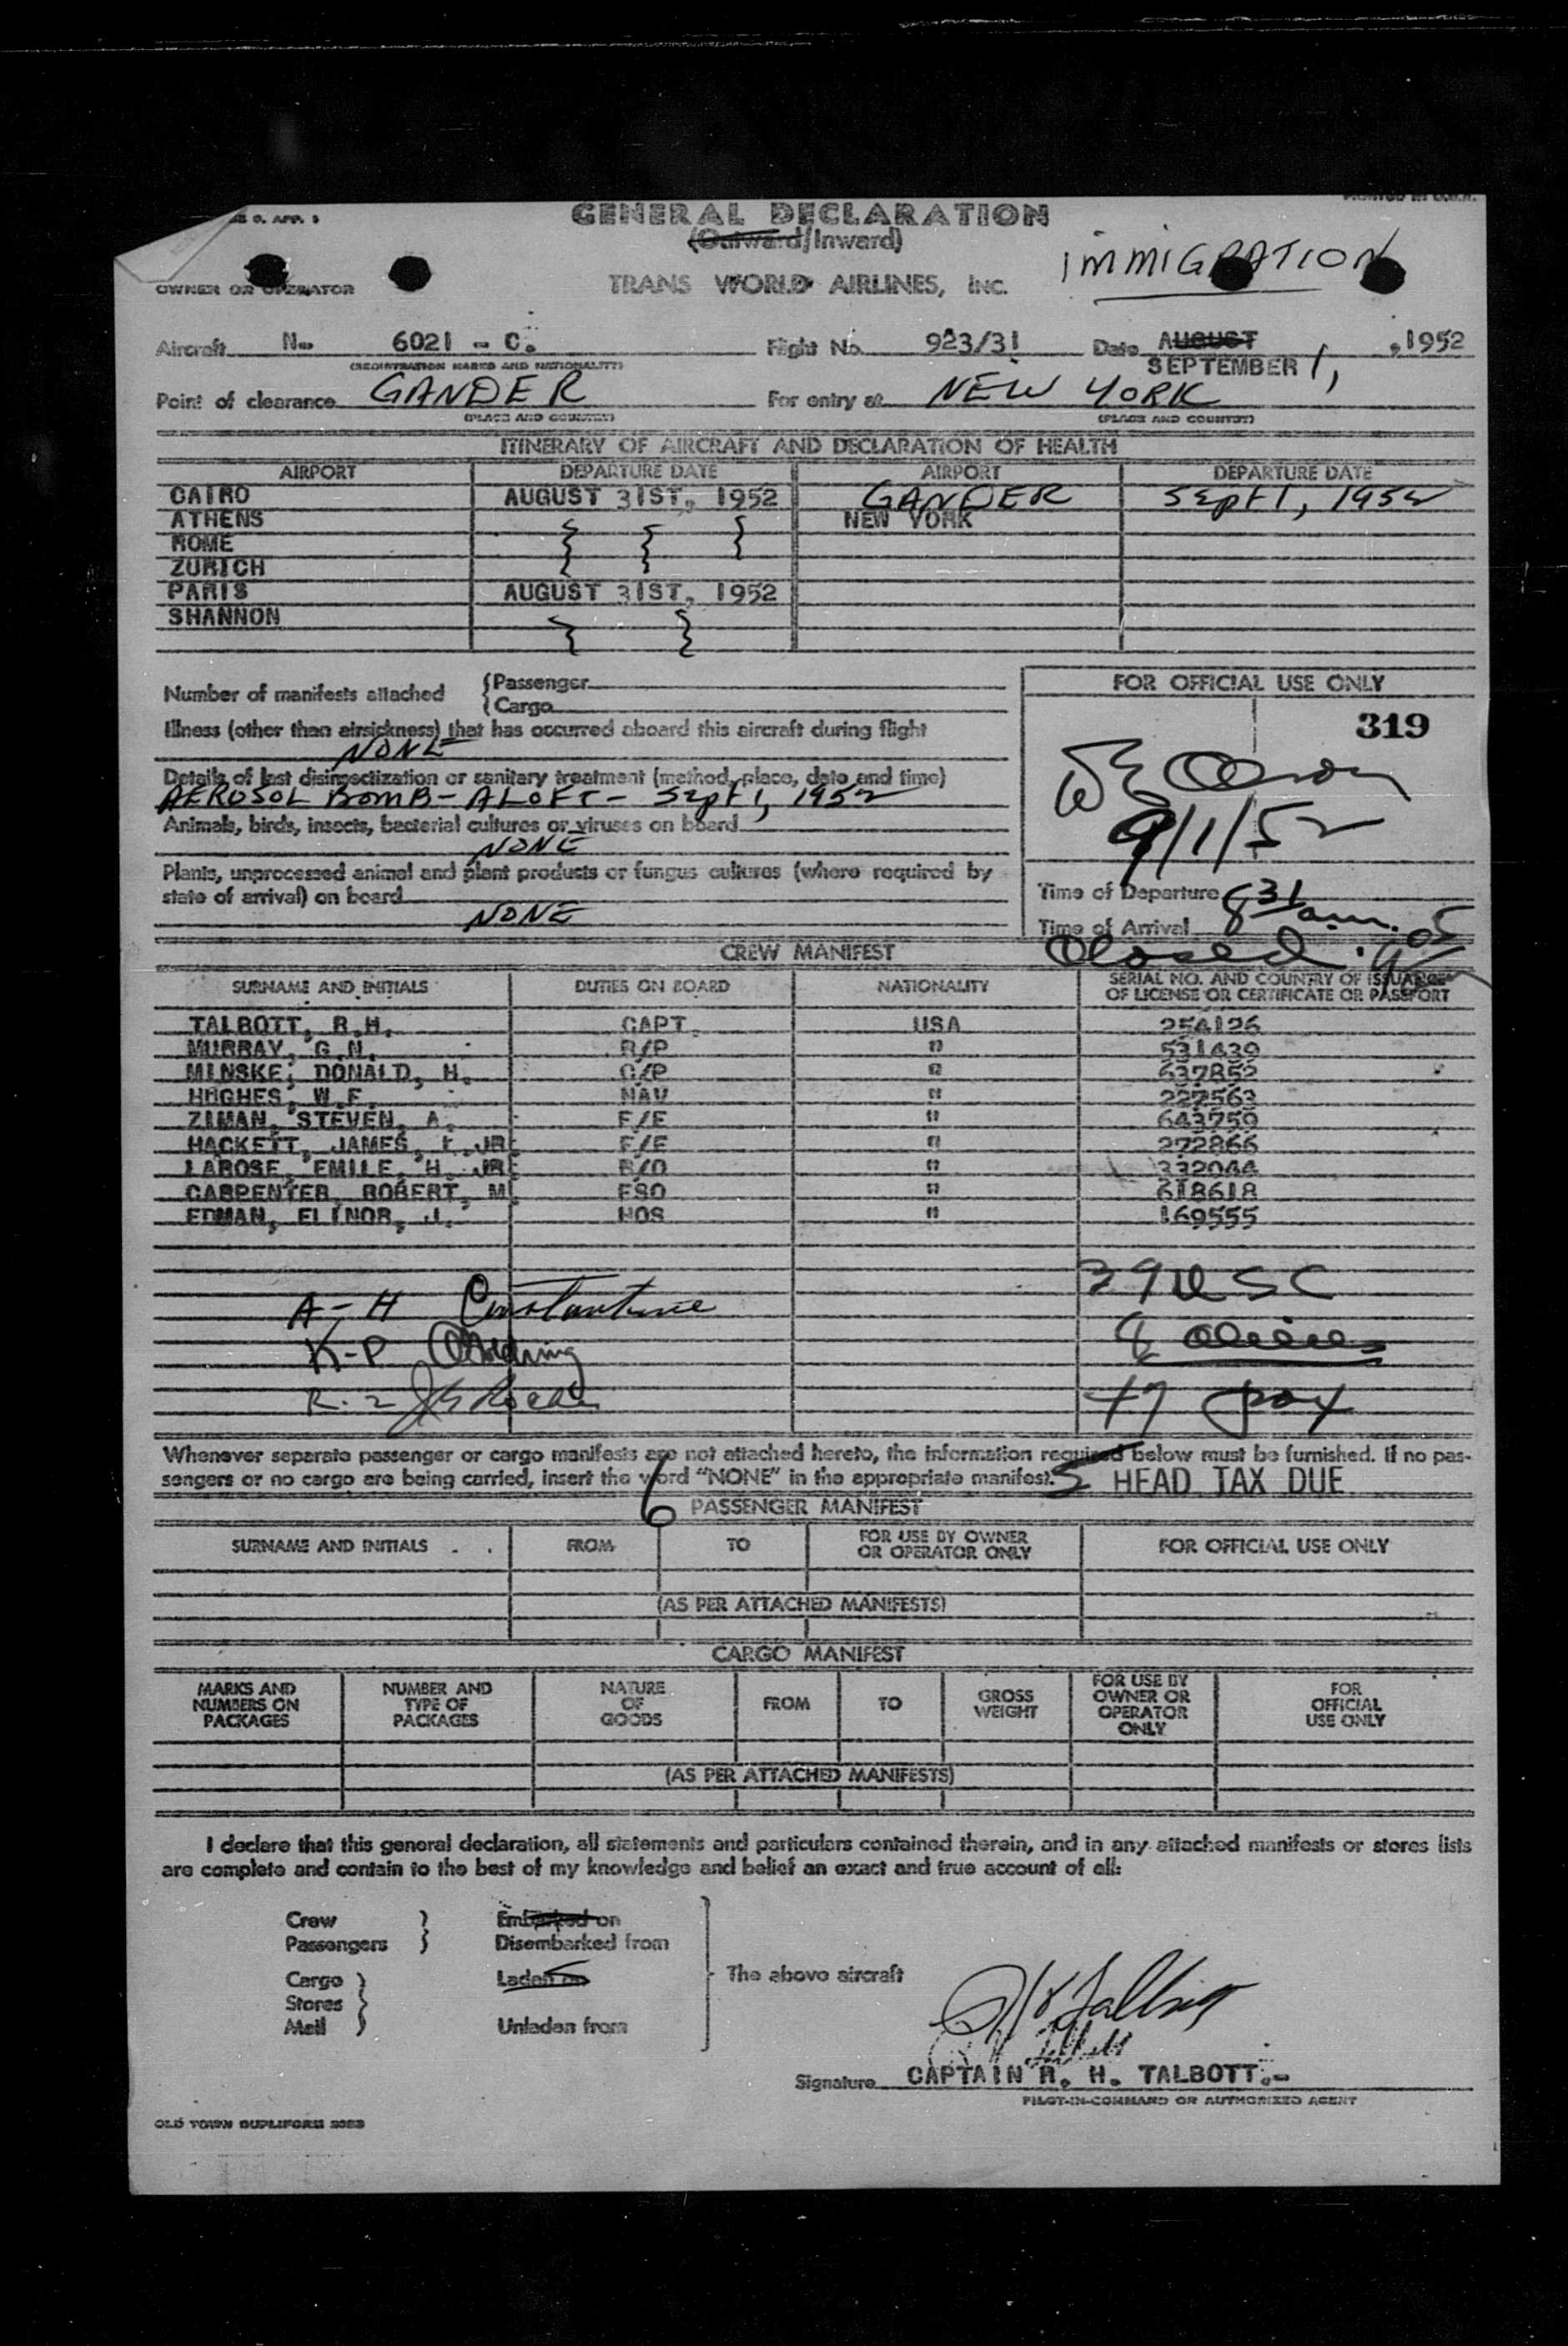 GENERAL DECLARATION
(Outward/Inward)
IMMIGRATION
OWNER OR OPERATOR TRANS WORLD AIRLINES, INC.
Aircraft N- 6021 - C. Flight No. 923/31 Date AUGUST , 1952
(REGISTRATION MARKS AND NATIONALITY) SEPTEMBER 1,
Point of clearance GANDER For entry at NEW YORK
(PLACE AND COUNTRY) (PLACE AND COUNTRY)
ITINERARY OF AIRCRAFT AND DECLARATION OF HEALTH
AIRPORT DEPARTURE DATE AIRPORT DEPARTURE DATE
CAIRO AUGUST 31ST, 1952 GANDER Sept 1, 1952
ATHENS NEW YORK
ROME
ZURICH
PARIS AUGUST 31ST, 1952
SHANNON
Number of manifests attached {Passenger
{Cargo
FOR OFFICIAL USE ONLY
319
9/1/52
Illness (other than airsickness) that has occurred aboard this aircraft during flight
NONE
Details of last disinsectization or sanitary treatment (method, place, date and time)
AEROSOL BOMB - ALOFT - Sept 1, 1952
Animals, birds, insects, bacterial cultures or viruses on board
NONE
Plants, unprocessed animal and plant products or fungus cultures (where required by
state of arrival) on board
NONE
Time of Departure
Time of Arrival 8 31 a.m.
Closed
CREW MANIFEST
SURNAME AND INITIALS DUTIES ON BOARD NATIONALITY SERIAL NO. AND COUNTRY OF ISSUANCE
OF LICENSE OR CERTIFICATE OR PASSPORT
TALBOTT, R.H. CAPT. USA 254126
MURRAY, G.N. R/P " 531439
MINSKE, DONALD, H. O/P " 637852
HUGHES, W.F. NAV " 227563
ZIMAN, STEVEN, A. F/E " 643759
HACKETT, JAMES, F. JR. F/E " 272866
LAROSE, EMILE, H. JR. R/O " 332044
CARPENTER, ROBERT, M. FSO " 618618
EDMAN, ELINOR, J. HOS " 169555
39 USC
A-H Constantine
8 aliens
K-P
R-Z
47 pax
Whenever separate passenger or cargo manifests are not attached hereto, the information required below must be furnished. If no pas-
sengers or no cargo are being carried, insert the word "NONE" in the appropriate manifest.
5 HEAD TAX DUE
6
PASSENGER MANIFEST
SURNAME AND INITIALS FROM TO FOR USE BY OWNER OR OPERATOR ONLY FOR OFFICIAL USE ONLY
(AS PER ATTACHED MANIFESTS)
CARGO MANIFEST
MARKS AND NUMBERS ON PACKAGES NUMBER AND TYPE OF PACKAGES NATURE OF GOODS FROM TO GROSS WEIGHT FOR USE BY OWNER OR OPERATOR ONLY FOR OFFICIAL USE ONLY
(AS PER ATTACHED MANIFESTS)
I declare that this general declaration, all statements and particulars contained therein, and in any attached manifests or stores lists
are complete and contain to the best of my knowledge and belief an exact and true account of all:
Crew } Embarked on
Passengers } Disembarked from
Cargo } Laden on
Stores } The above aircraft
Mail } Unladen from
Signature CAPTAIN R. H. TALBOTT.-
PILOT-IN-COMMAND OR AUTHORIZED AGENT
OLD TOWN DUPLIFORM